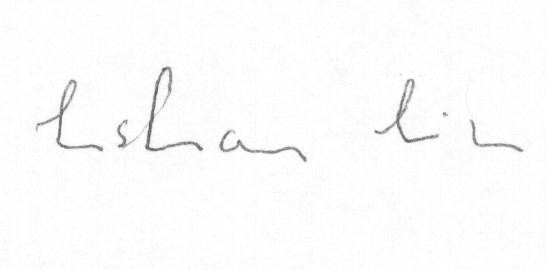 Lishan Lin